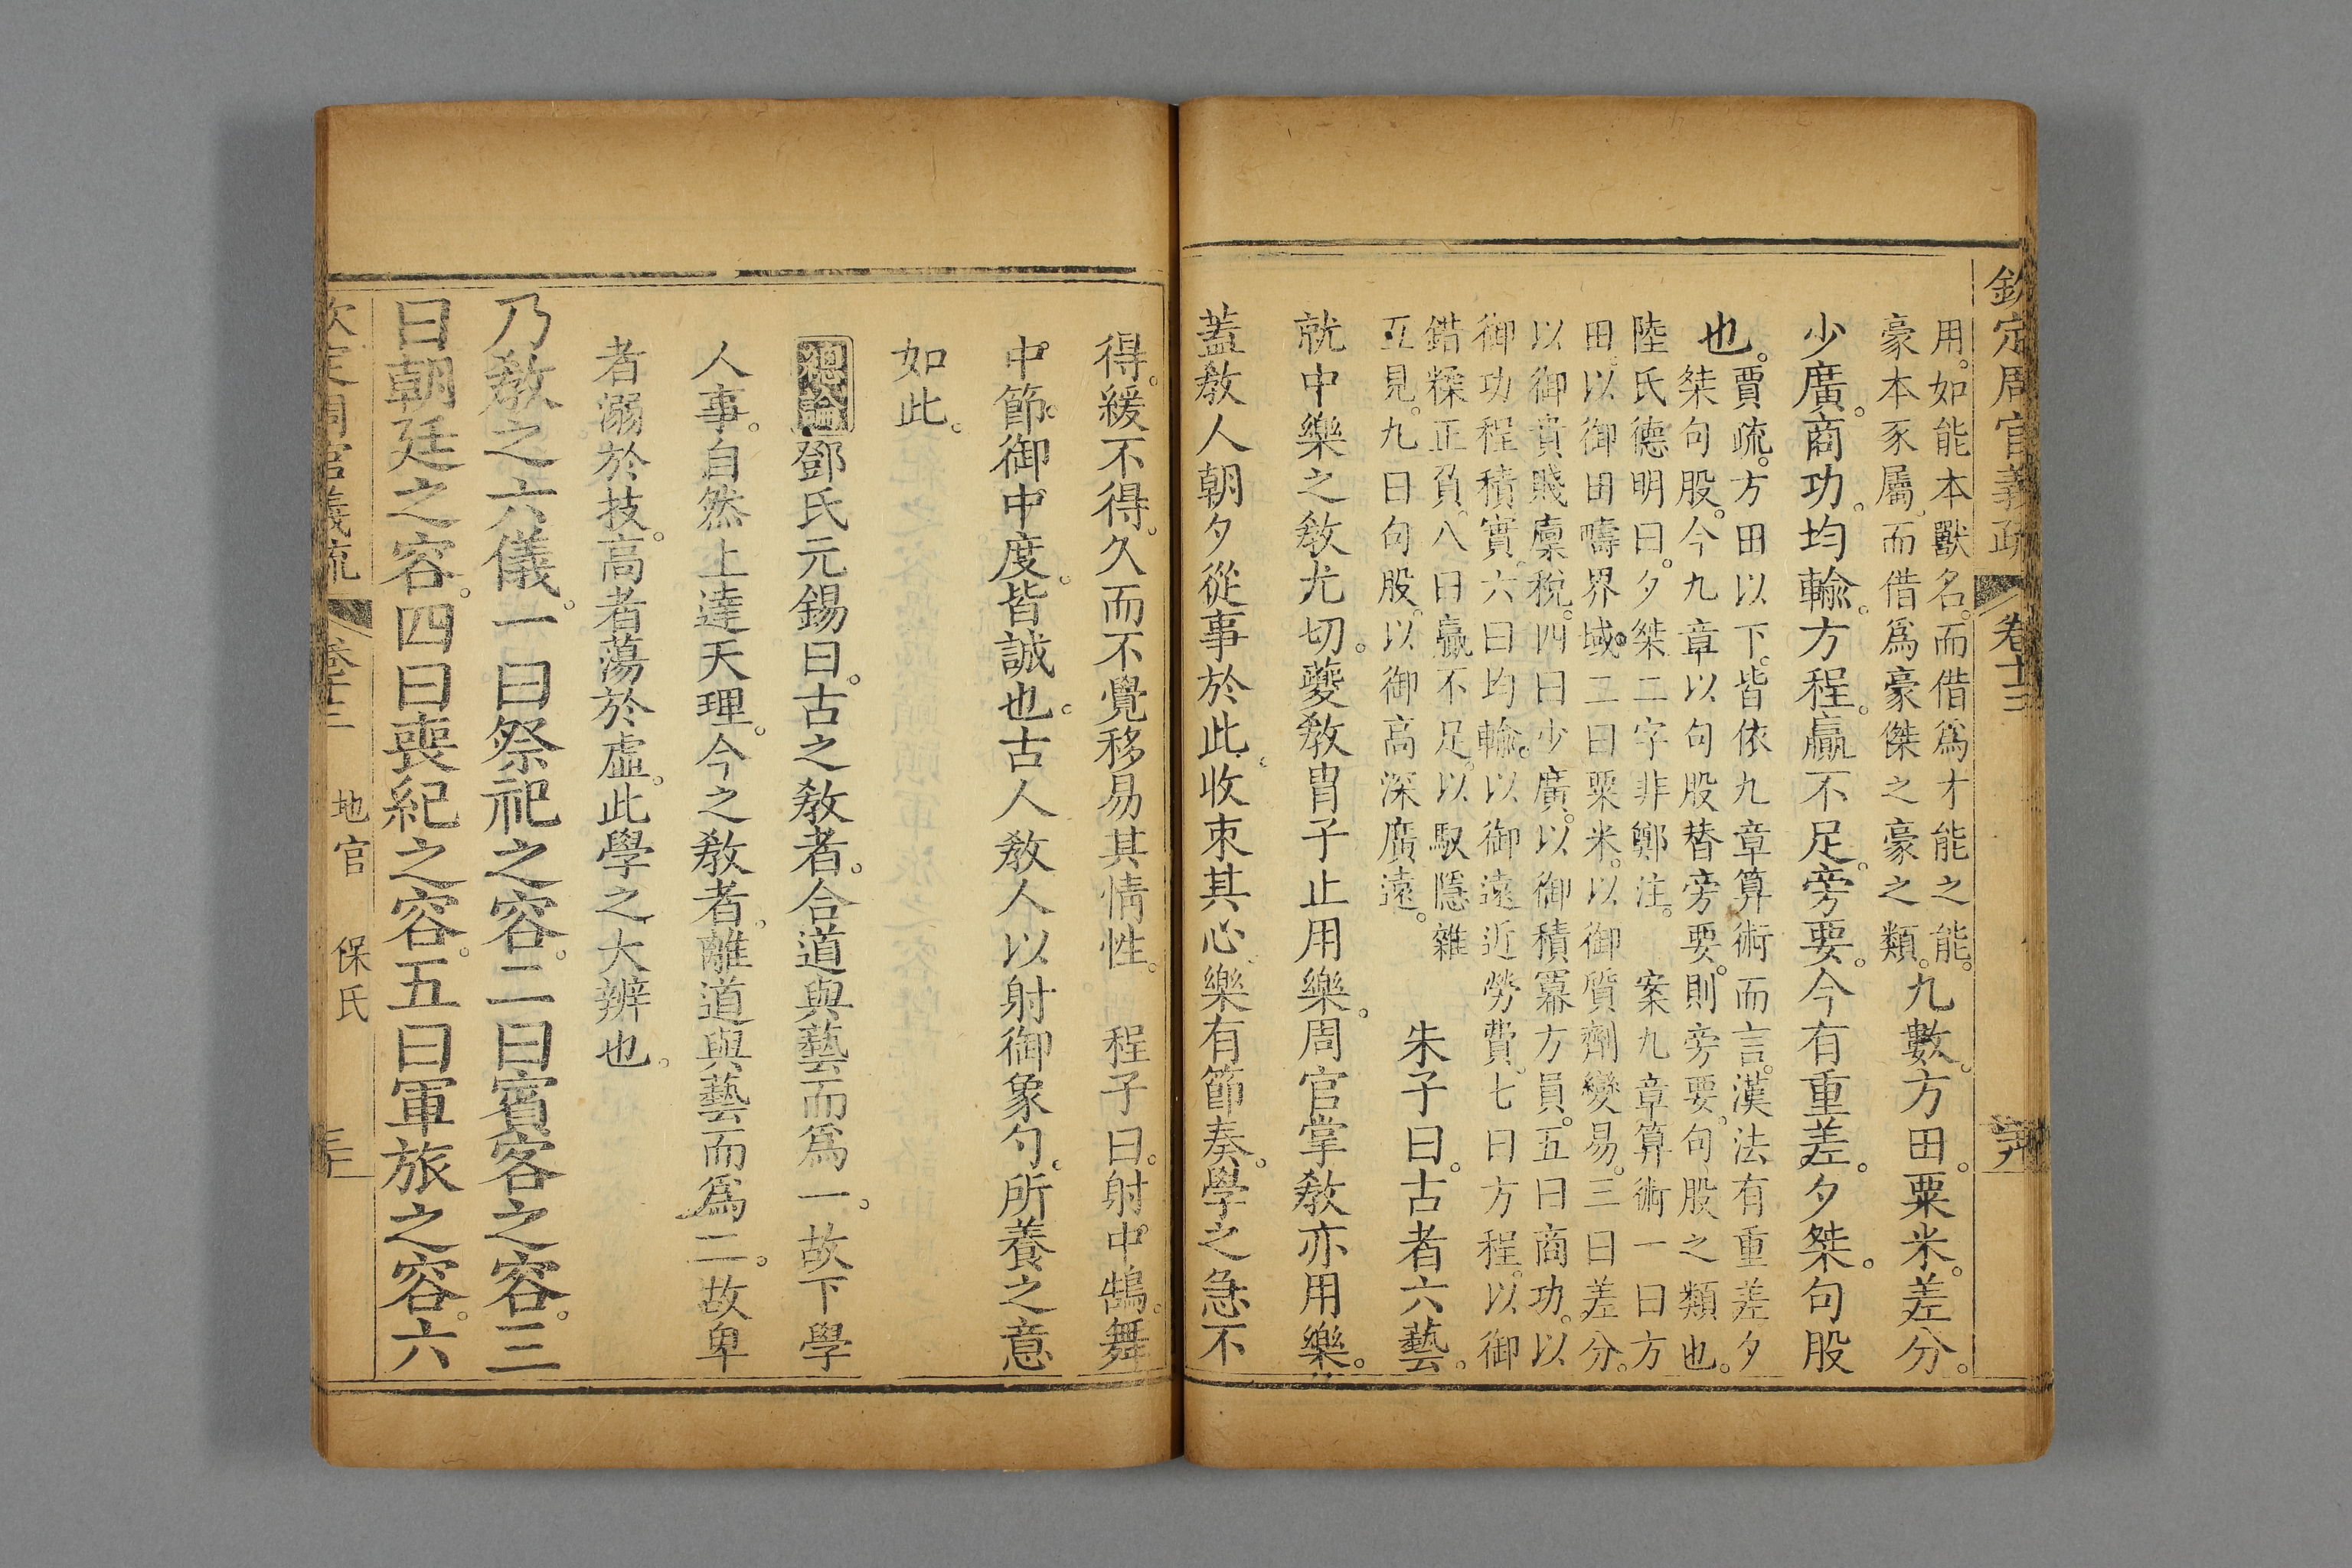 欽定周官義疏 卷十三
用。如能本獸名。而借爲才能之能。
豪本豕屬。而借爲豪傑之豪之類。
九數。方田。粟米。差分。
少廣。商功。均輸。方程。贏不足。旁要。今有重差。夕桀。句股
也。
賈疏。方田以下。皆依九章算術而言。漢法有重差夕
桀句股。今九章以句股替旁要。則旁要。句股之類也。
陸氏德明曰。夕桀二字非鄭注。 案九章算術一曰方
田。以御田疇界域。二曰粟米。以御質劑變易。三曰差分。
以御貴賤廩稅。四曰少廣。以御積冪方員。五曰商功。以
御功程積實。六曰均輸。以御遠近勞費。七曰方程。以御
錯糅正負。八曰贏不足。以馭隱雜
互見。九曰句股。以御高深廣遠。
朱子曰。古者六藝。
就中樂之教尤切。夔教胄子止用樂。周官掌教亦用樂。
蓋教人朝夕從事於此。收束其心。樂有節奏。學之急不
得。緩不得。久而不覺移易其情性。 程子曰。射中鵠。舞
中節。御中度。皆誠也。古人教人以射御象勺。所養之意
如此。
總論鄧氏元錫曰。古之教者。合道與藝而爲一。故下學
人事。自然上達天理。今之教者。離道與藝而爲二。故卑
者溺於技。高者蕩於虛。此學之大辨也。
乃教之六儀。一曰祭祀之容。二曰賓客之容。三
曰朝廷之容。四曰喪紀之容。五曰軍旅之容。六
欽定周官義疏 卷十三 地官 保氏 三十